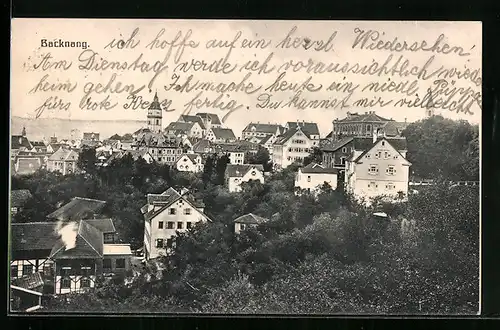 Backnang.
ich hoffe auf ein herzl. Wiedersehen
Am Dienstag werde ich voraussichtlich wieder
heim gehen, Ich mache heute ein nied. Käppi
fürs Rote Kreuz fertig. Du kannst mir vielleicht